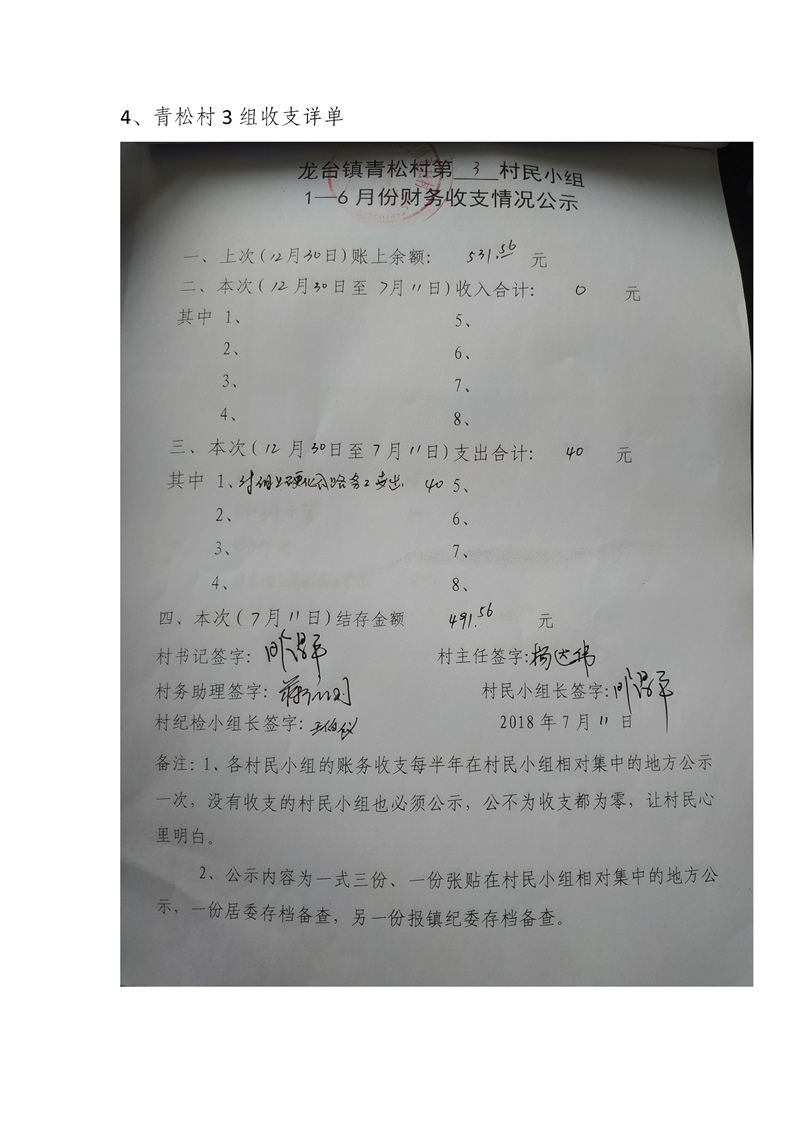 4、青松村 3 组收支详单
龙台镇青松村第 3 村民小组
1—6 月份财务收支情况公示
一、上次(12月30日)账上余额: 531.56 元
二、本次(12月30日至7月11日)收入合计: 0 元
其中 1、 5、
2、 6、
3、 7、
4、 8、
三、本次(12月30日至7月11日)支出合计: 40 元
其中 1、 40 5、
2、 6、
3、 7、
4、 8、
四、本次(7月11日)结存金额 491.56 元
村书记签字: 村主任签字:杨达伟
村务助理签字: 村民小组长签字:
村纪检小组长签字:王伯仪 2018年7月11日
备注:1、各村民小组的账务收支每半年在村民小组相对集中的地方公示
一次,没有收支的村民小组也必须公示,公不为收支都为零,让村民心
里明白。
2、公示内容为一式三份、一份张贴在村民小组相对集中的地方公
示,一份居委存档备查,另一份报镇纪委存档备查。